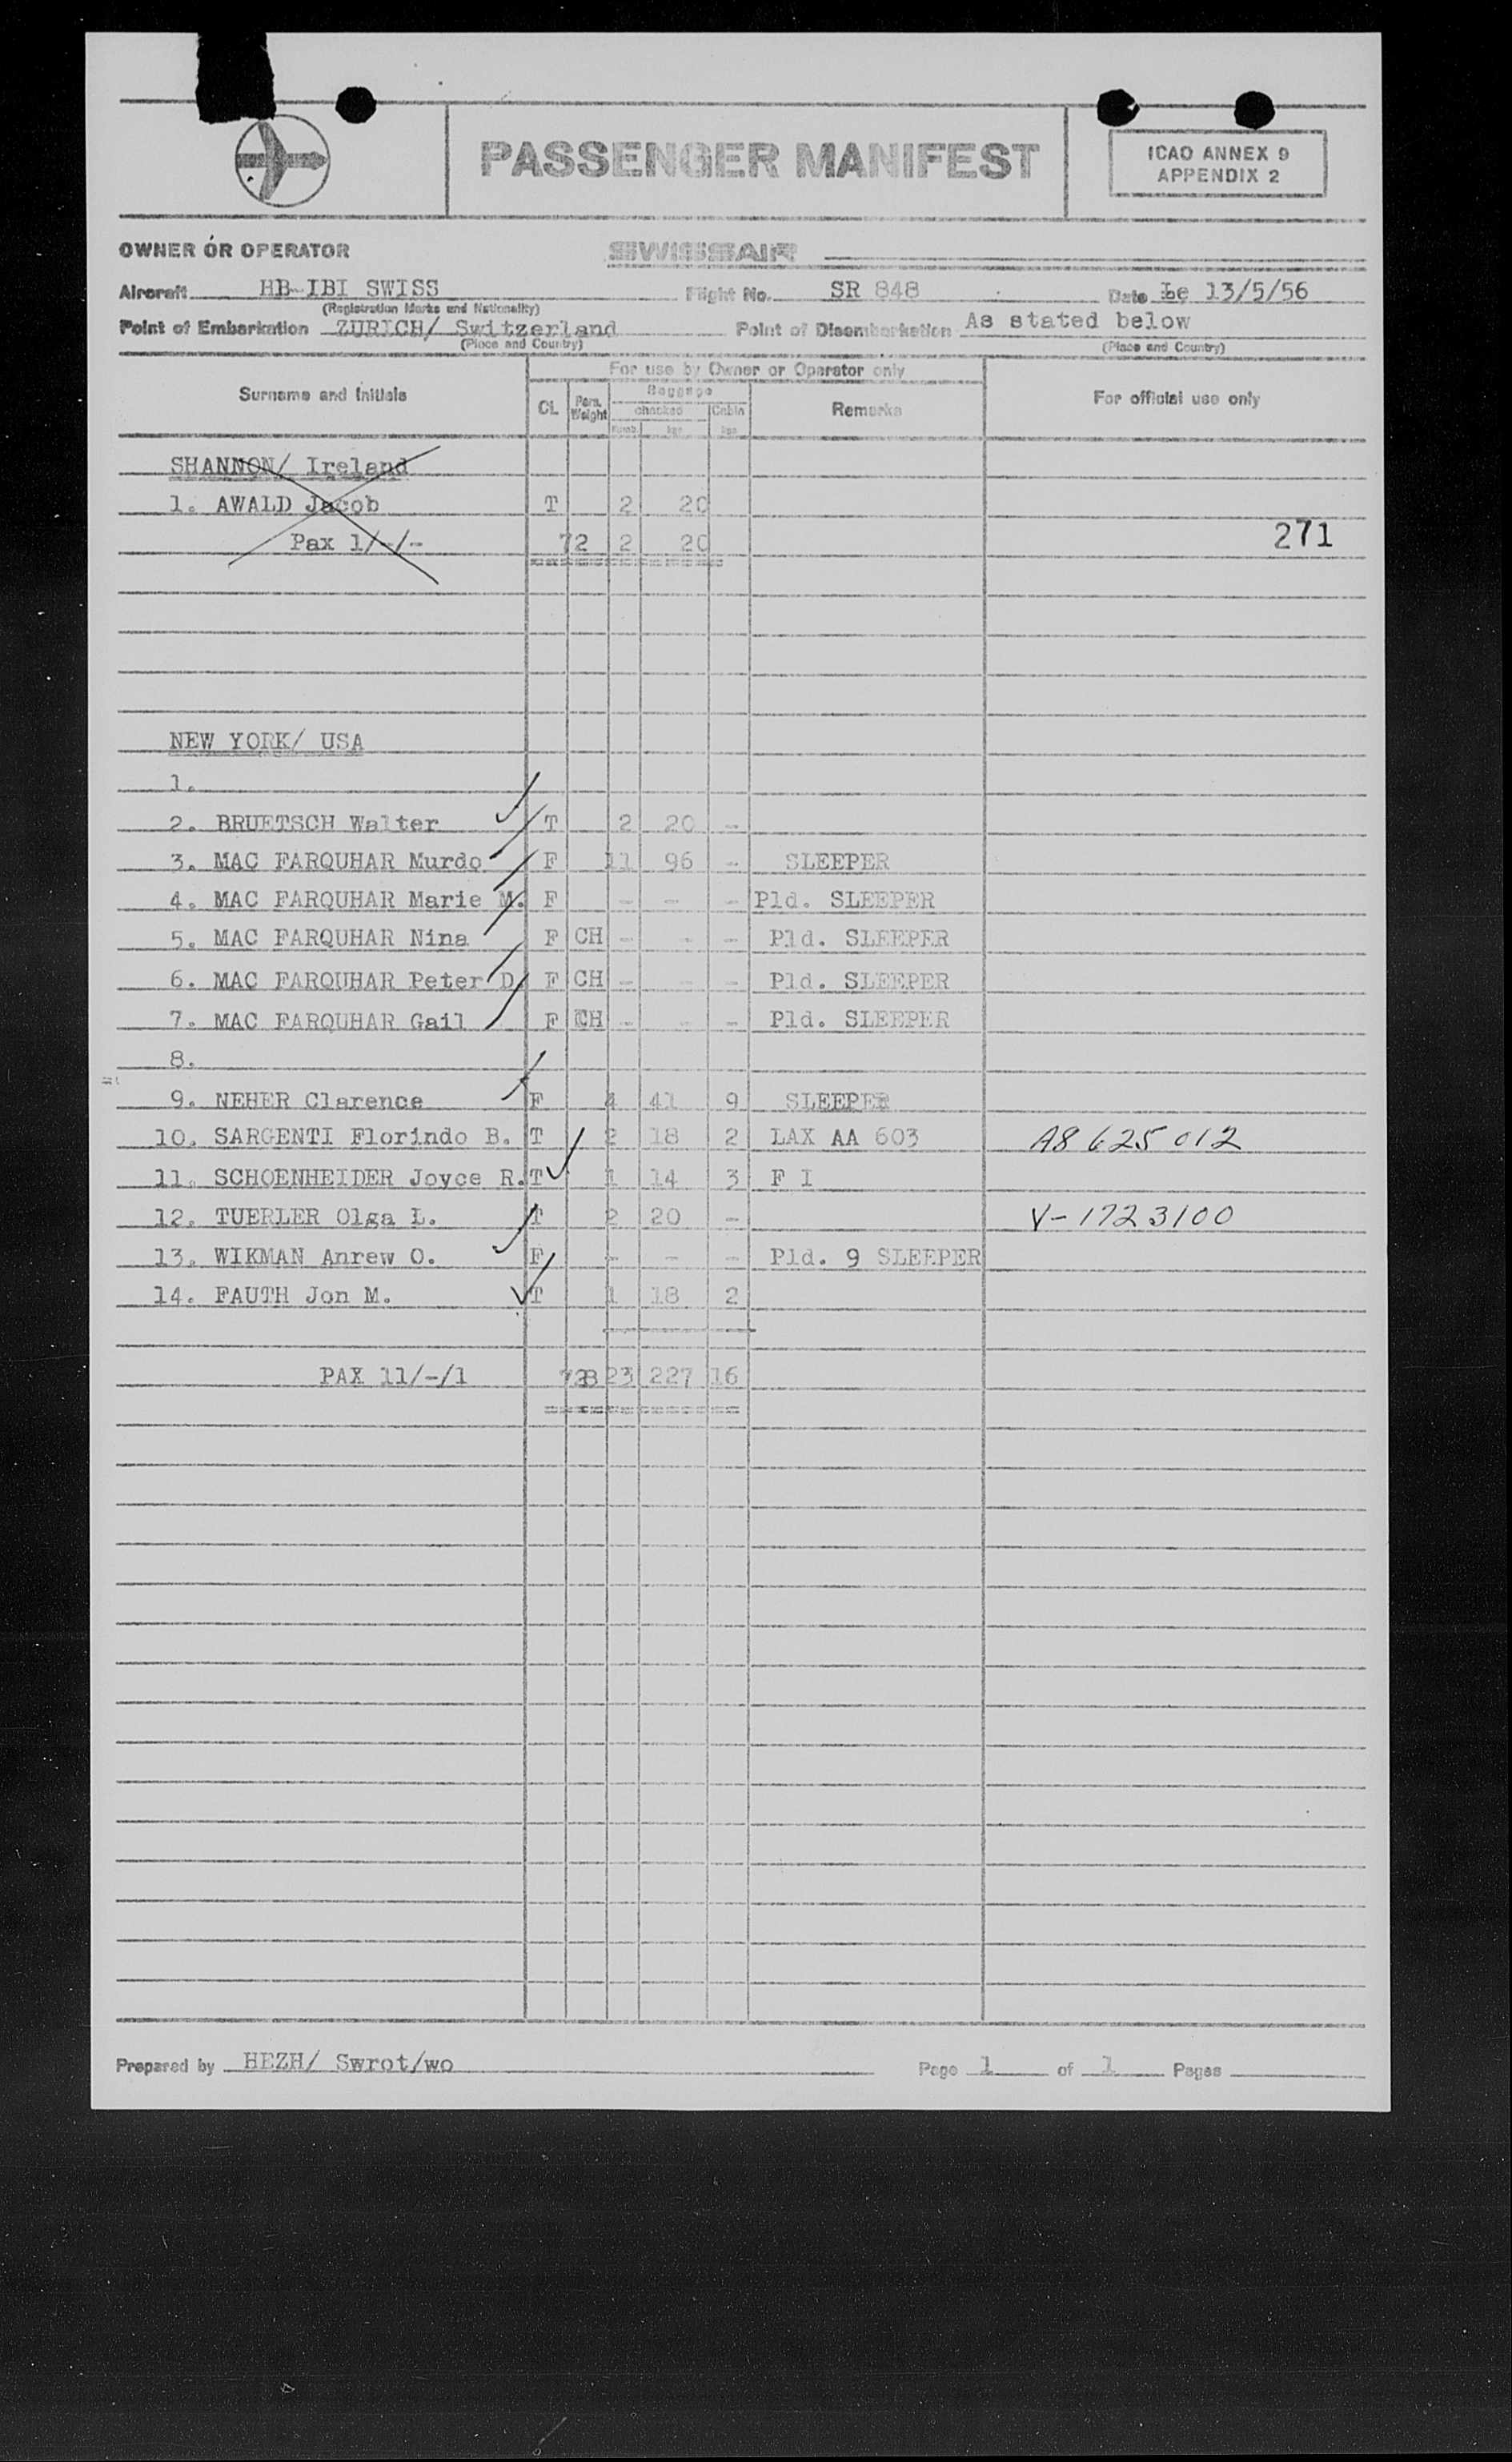 PASSENGER MANIFEST
ICAO ANNEX 9
APPENDIX 2
OWNER OR OPERATOR SWISSAIR
Aircraft HB-IBI SWISS Flight No. SR 848 Date Le 13/5/56
(Registration Marks and Nationality)
Point of Embarkation ZURICH/ Switzerland Point of Disembarkation As stated below
(Place and Country) (Place and Country)
For use by Owner or Operator only
Surname and initials CL Pers. Weight Baggage Remarks For official use only
checked Cabin
Numb. kgs kgs
SHANNON/ Ireland
1. AWALD Jacob T 2 20
Pax 1/-/- 72 2 20
271
NEW YORK/ USA
1.
2. BRUETSCH Walter T 2 20 -
3. MAC FARQUHAR Murdo F 11 96 - SLEEPER
4. MAC FARQUHAR Marie M. F - - - Pld. SLEEPER
5. MAC FARQUHAR Nina F CH - - - Pld. SLEEPER
6. MAC FARQUHAR Peter D. F CH - - - Pld. SLEEPER
7. MAC FARQUHAR Gail F CH - - - Pld. SLEEPER
8.
9. NEHER Clarence F 4 41 9 SLEEPER
10. SARGENTI Florindo B. T 2 18 2 LAX AA 603 A8 625 012
11. SCHOENHEIDER Joyce R. T 1 14 3 F I
12. TUERLER Olga L. T 2 20 - V-1723100
13. WIKMAN Anrew O. F - - - Pld. 9 SLEEPER
14. FAUTH Jon M. T 1 18 2
PAX 11/-/1 23 227 16
Prepared by HEZH/ Swrot/wo Page 1 of 1 Pages